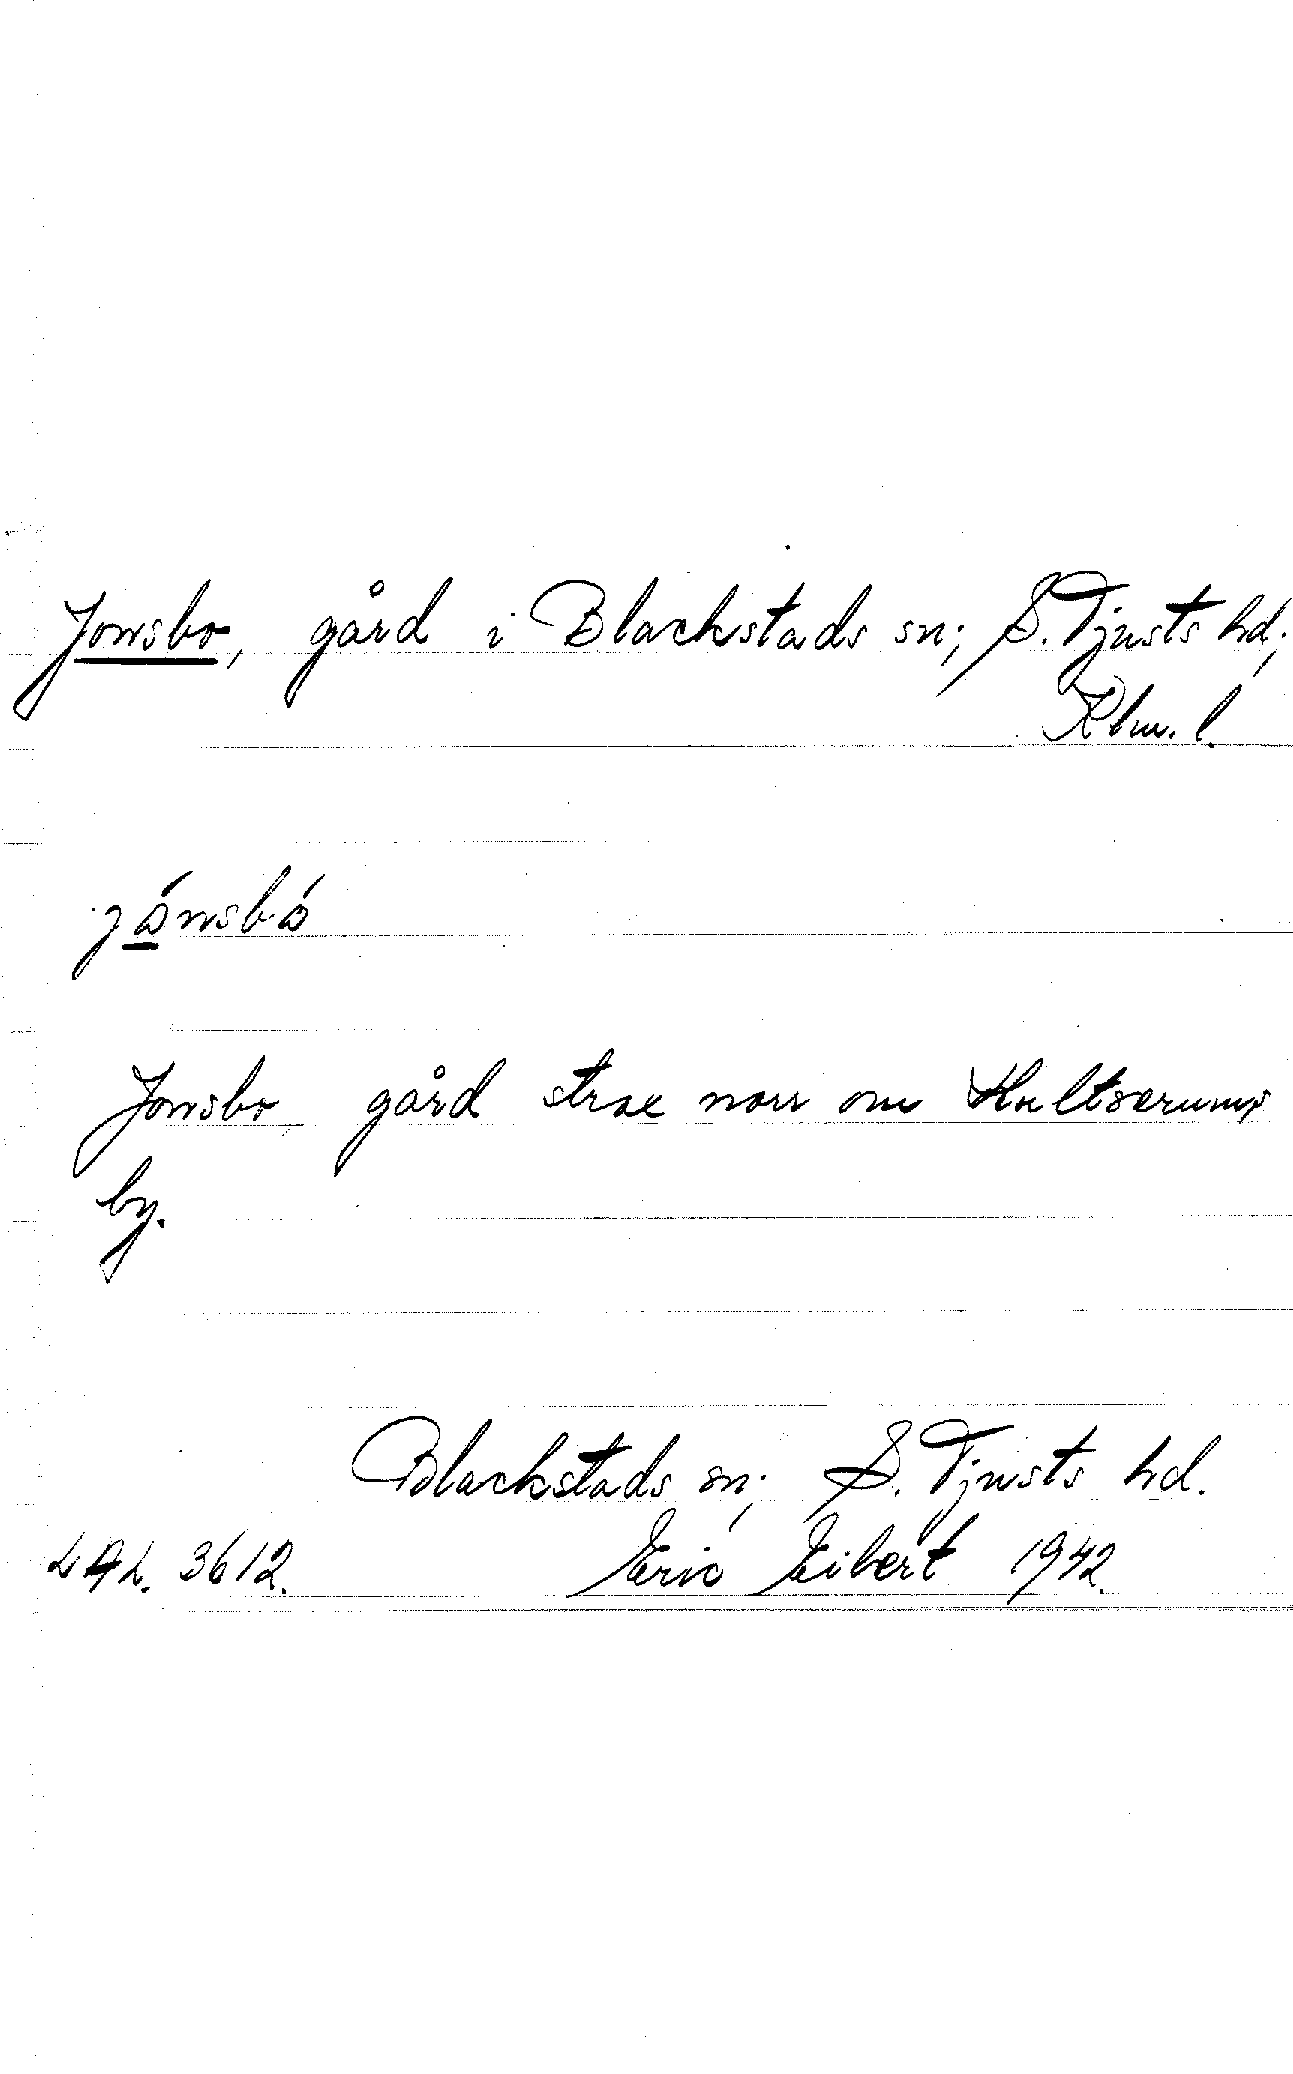 Jonsbo, gård i Blackstads sn; S. Tjusts hd;
Kbm. l.
jó̲nsbó
Jonsbo gård strax norr om Hultserums
by.
Blackstads sn; S. Tjusts hd.
LAL. 3612. Eric Eibert 1942.